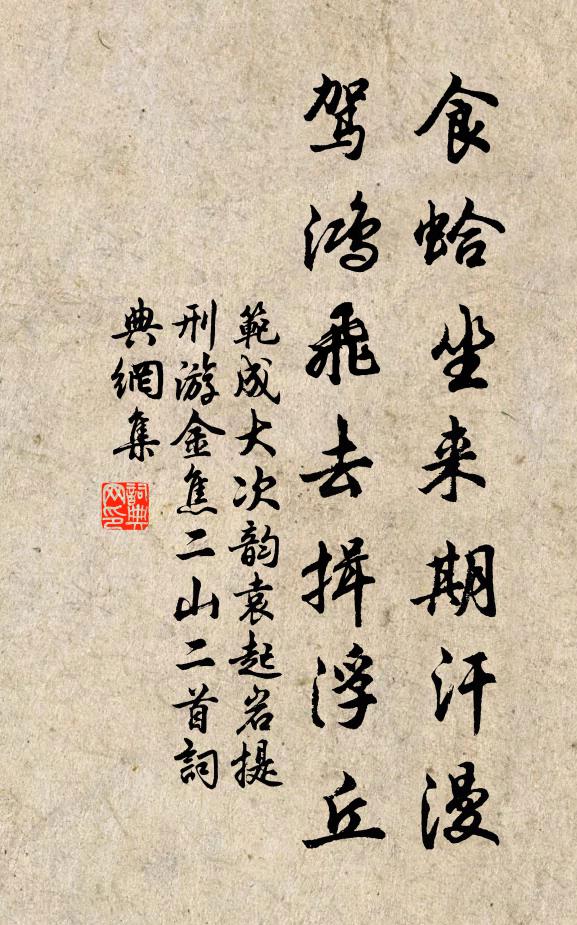 食蛤坐来期汗漫
驾鸿飛去揖浮丘
範成大次韵袁起岩提
刑游金焦二山二首詞
典網集
詞典
网印